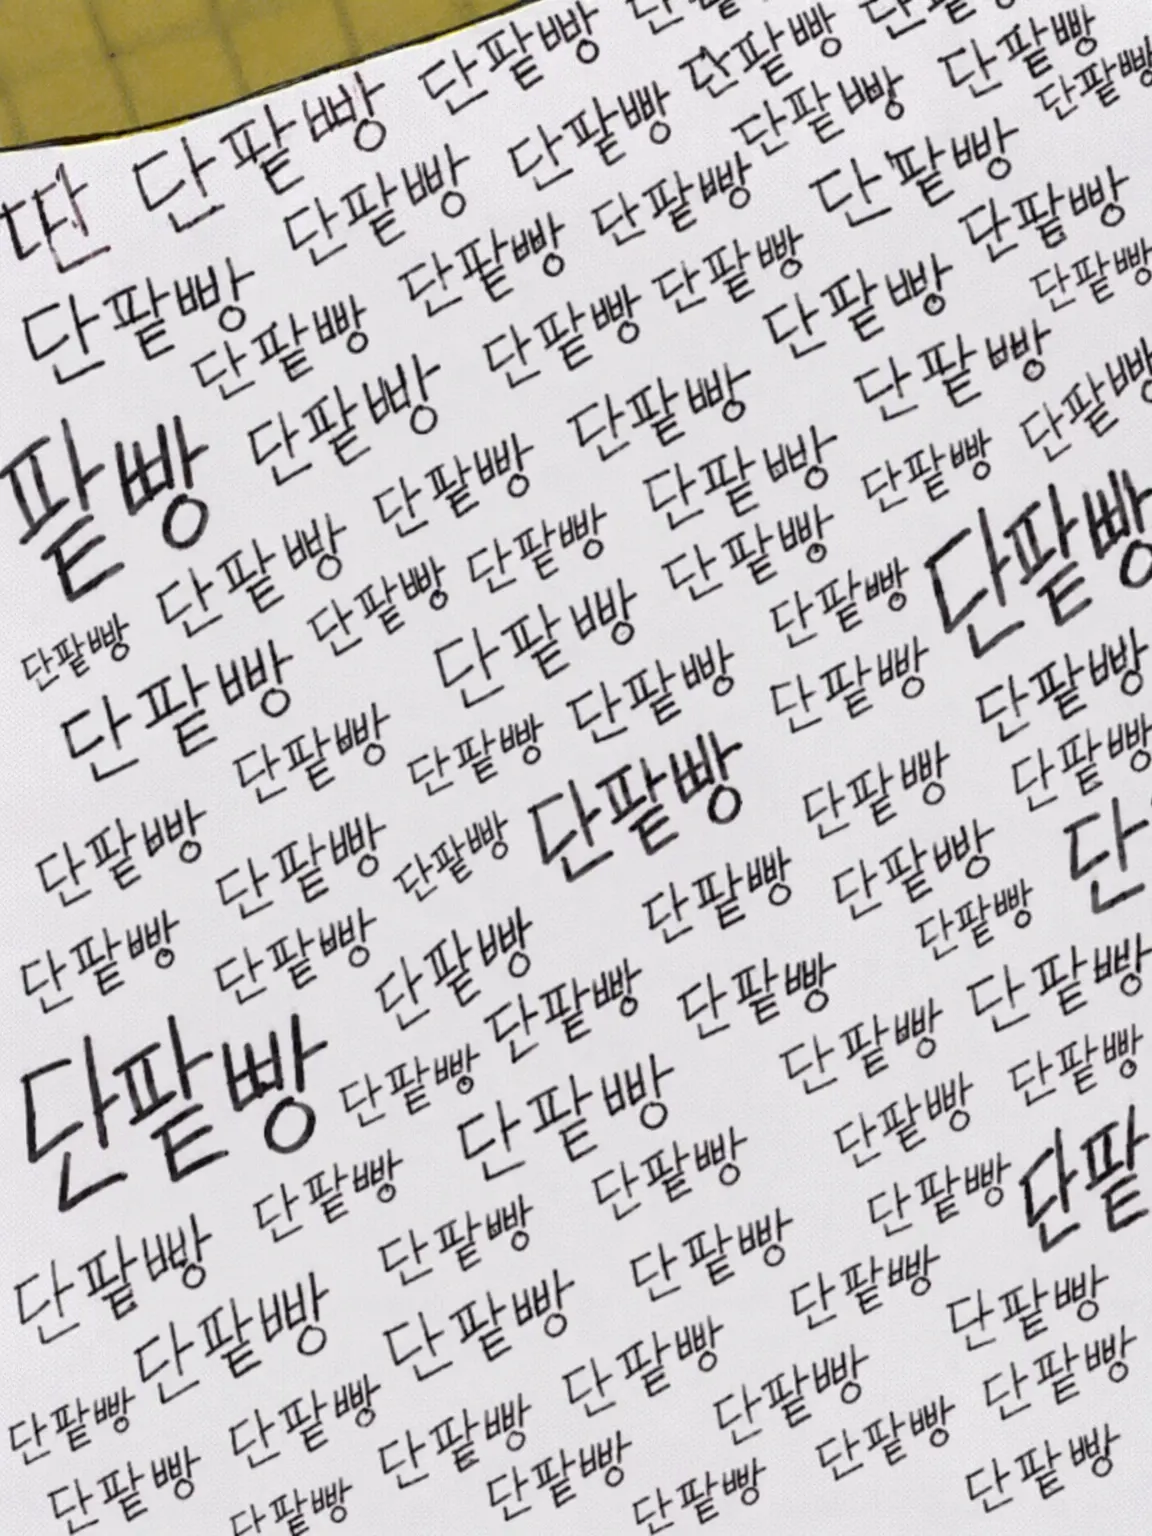 단팥빵 단팥빵 단팥빵 단팥빵
딴 단팥빵 단팥빵 단팥빵
단팥빵 단팥빵 단팥빵 단팥빵
단팥빵 단팥빵 단팥빵 단팥빵
단팥빵 단팥빵 단팥빵
단팥빵 단팥빵 단팥빵 단팥빵
팥빵 단팥빵 단팥빵 단팥빵
단팥빵 단팥빵 단팥빵 단팥빵
단팥빵 단팥빵 단팥빵 단팥빵
단팥빵 단팥빵 단팥빵 단팥빵
단팥빵 단팥빵 단팥빵 단팥빵 단팥빵
단팥빵 단팥빵 단팥빵 단팥빵 단팥빵 단
단팥빵 단팥빵 단팥빵 단팥빵
단팥빵 단팥빵 단팥빵 단팥빵 단팥빵 단팥빵
단팥빵 단팥빵 단팥빵
단팥빵 단팥빵 단팥빵 단팥
단팥빵 단팥빵 단팥빵 단팥빵 단팥빵
단팥빵 단팥빵 단팥빵 단팥빵
단팥빵 단팥빵 단팥빵 단팥빵 단팥빵
단팥빵 단팥빵 단팥빵 단팥빵 단팥빵